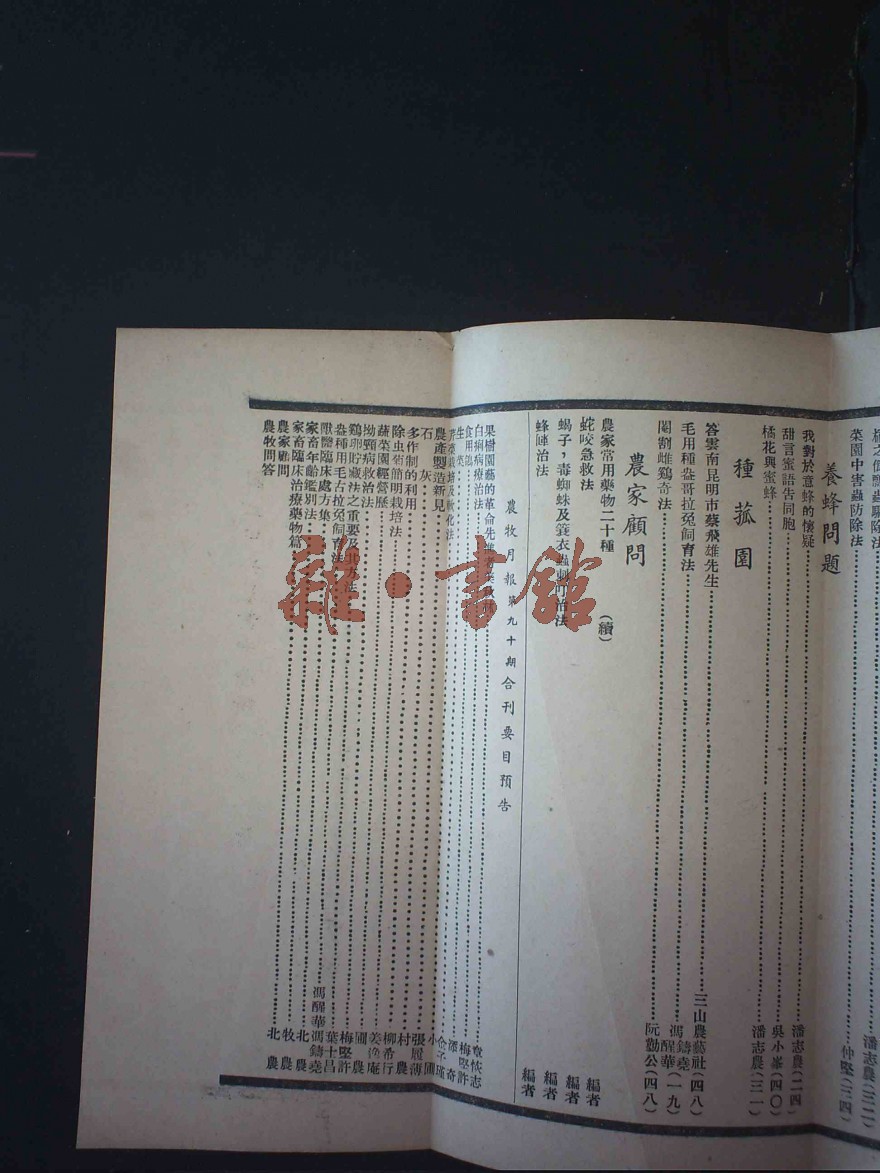 菜園中害蟲防除法 仲堅(三四)
養蜂問題
我對於意蜂的懷疑 潘志農(二四)
甜言蜜語告同胞 吳小峯(四〇)
橘花與蜜蜂 潘志農(三一)
種菰園
答雲南昆明市蔡飛雄先生 三山農藝社(四八)
毛用種盎哥拉兔飼育法 馮鑄堯 馮醒華(一九)
閹割雌鷄奇法 阮勸公(四八)
農家顧問
農家常用藥物二十種(續) 編者
蛇咬急救法 編者
蝎子，毒蜘蛛及簑衣蟲刺 治法 編者
蜂 治法 編者
農牧月報第九十期合刊要目預告
果樹園藝的革命先 章恢志
白痢病療治法 梅堅許
食用 澤奇
生菜
栽培及軟化法
農產製造新見
石灰 張履薄
多作制的利用 村農
除虫菊簡明栽培法 柳希行
蔬菜園經營歷
拗頸病救治法 圃農
鷄卵貯藏法之重要及其方法 梅堅許
盎種用毛古拉兔飼育法 葉士昌
獸醫臨床處方集 馮鑄堯 馮醒華
家畜年齡鑑別法 北農
家畜臨床治療藥物篇
農家顧問 牧農
農牧問答 北農
雜·書館